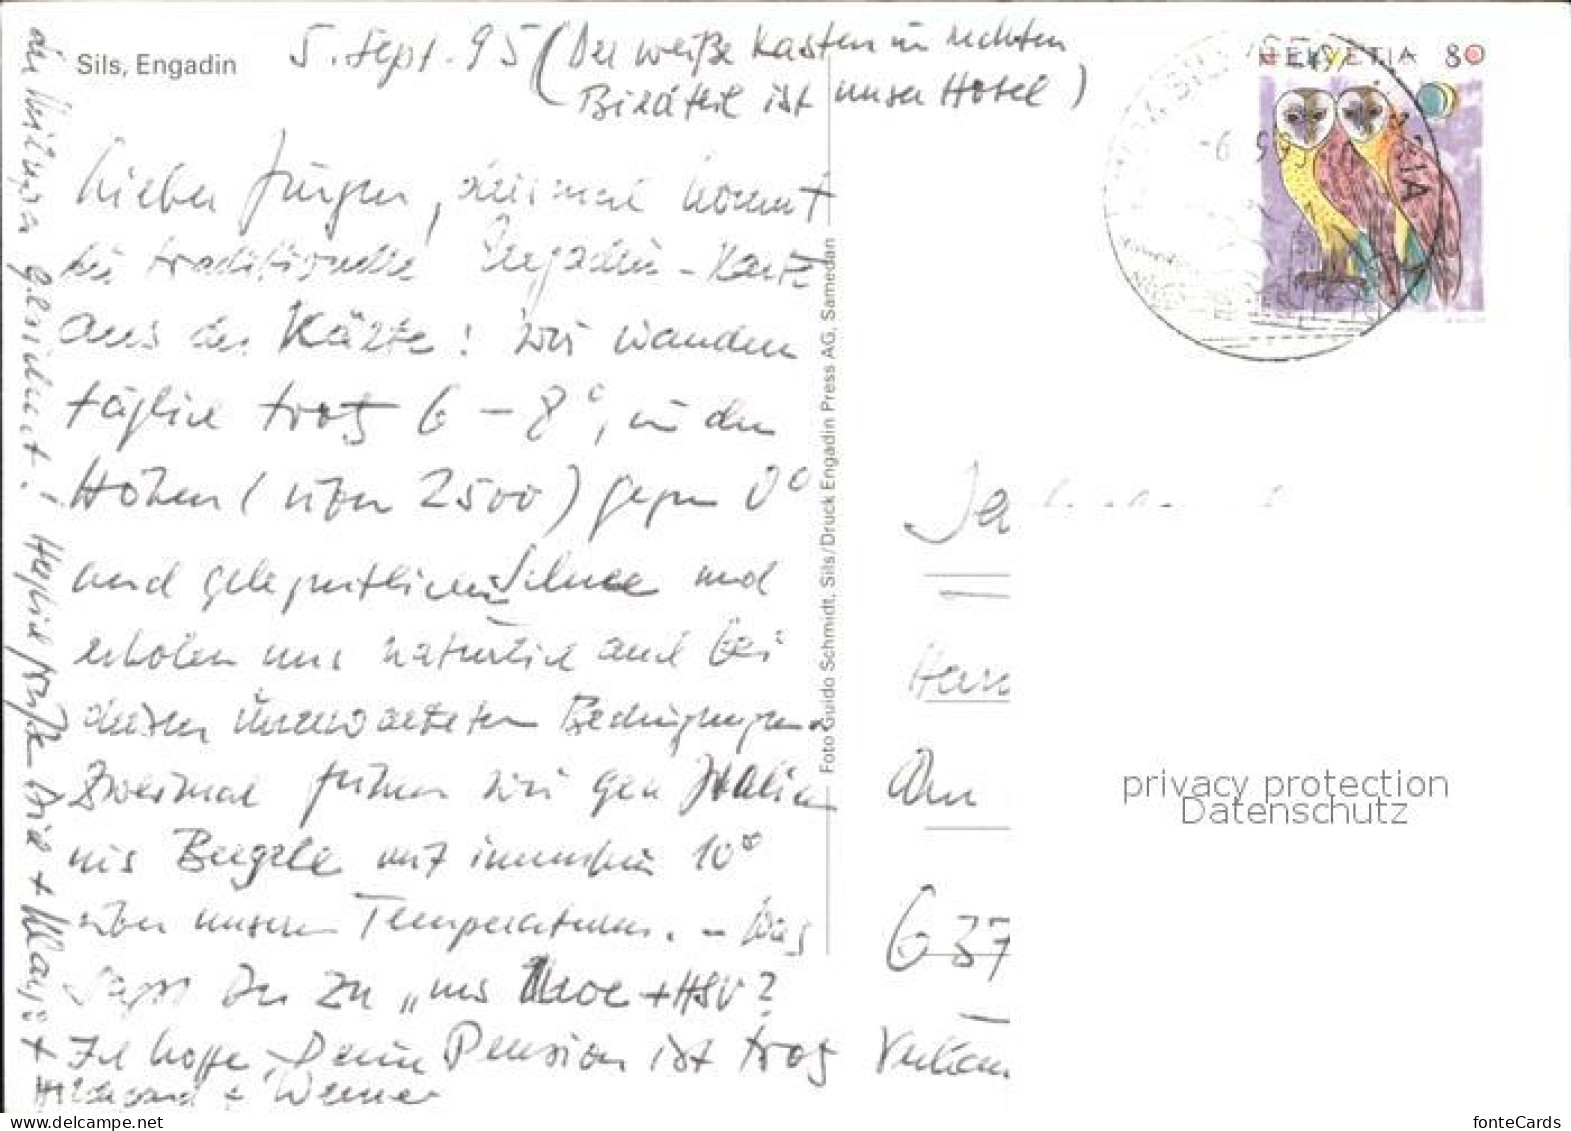 Sils, Engadin
5. Sept. 95 (Der weiße Kasten im rechten
Bildteil ist unser Hotel)
HELVETIA 80
Lieber Jürgen, diesmal kommt
die traditionelle Engadin-Karte
aus der Kälte! Wir wandern
täglich trotz 6 – 8°, in den
Höhen (über 2500) gegen 0°
und gelegentlichem Schnee und
erholen uns natürlich auch bei
diesen unerwarteten Bedingungen.
Zweimal fuhren wir gen Italien
ins Bergell mit immerhin 10°
über unseren Temperaturen. – Was
sagst Du zu „uns + HSV?
Ich hoffe, Deine Pension ist trotz
gesichert. – Herzliche Grüße Dir +
Hildegard + Werner
Foto Guido Schmidt, Sils/Druck Engadin Press AG, Samedan
Herr
An
637
privacy protection
Datenschutz
fonteCards